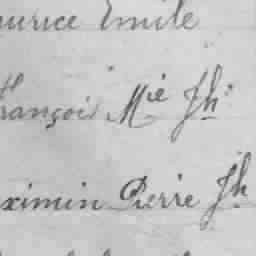 urice Emile
François Mie Jh.
ximin Pierre Jh